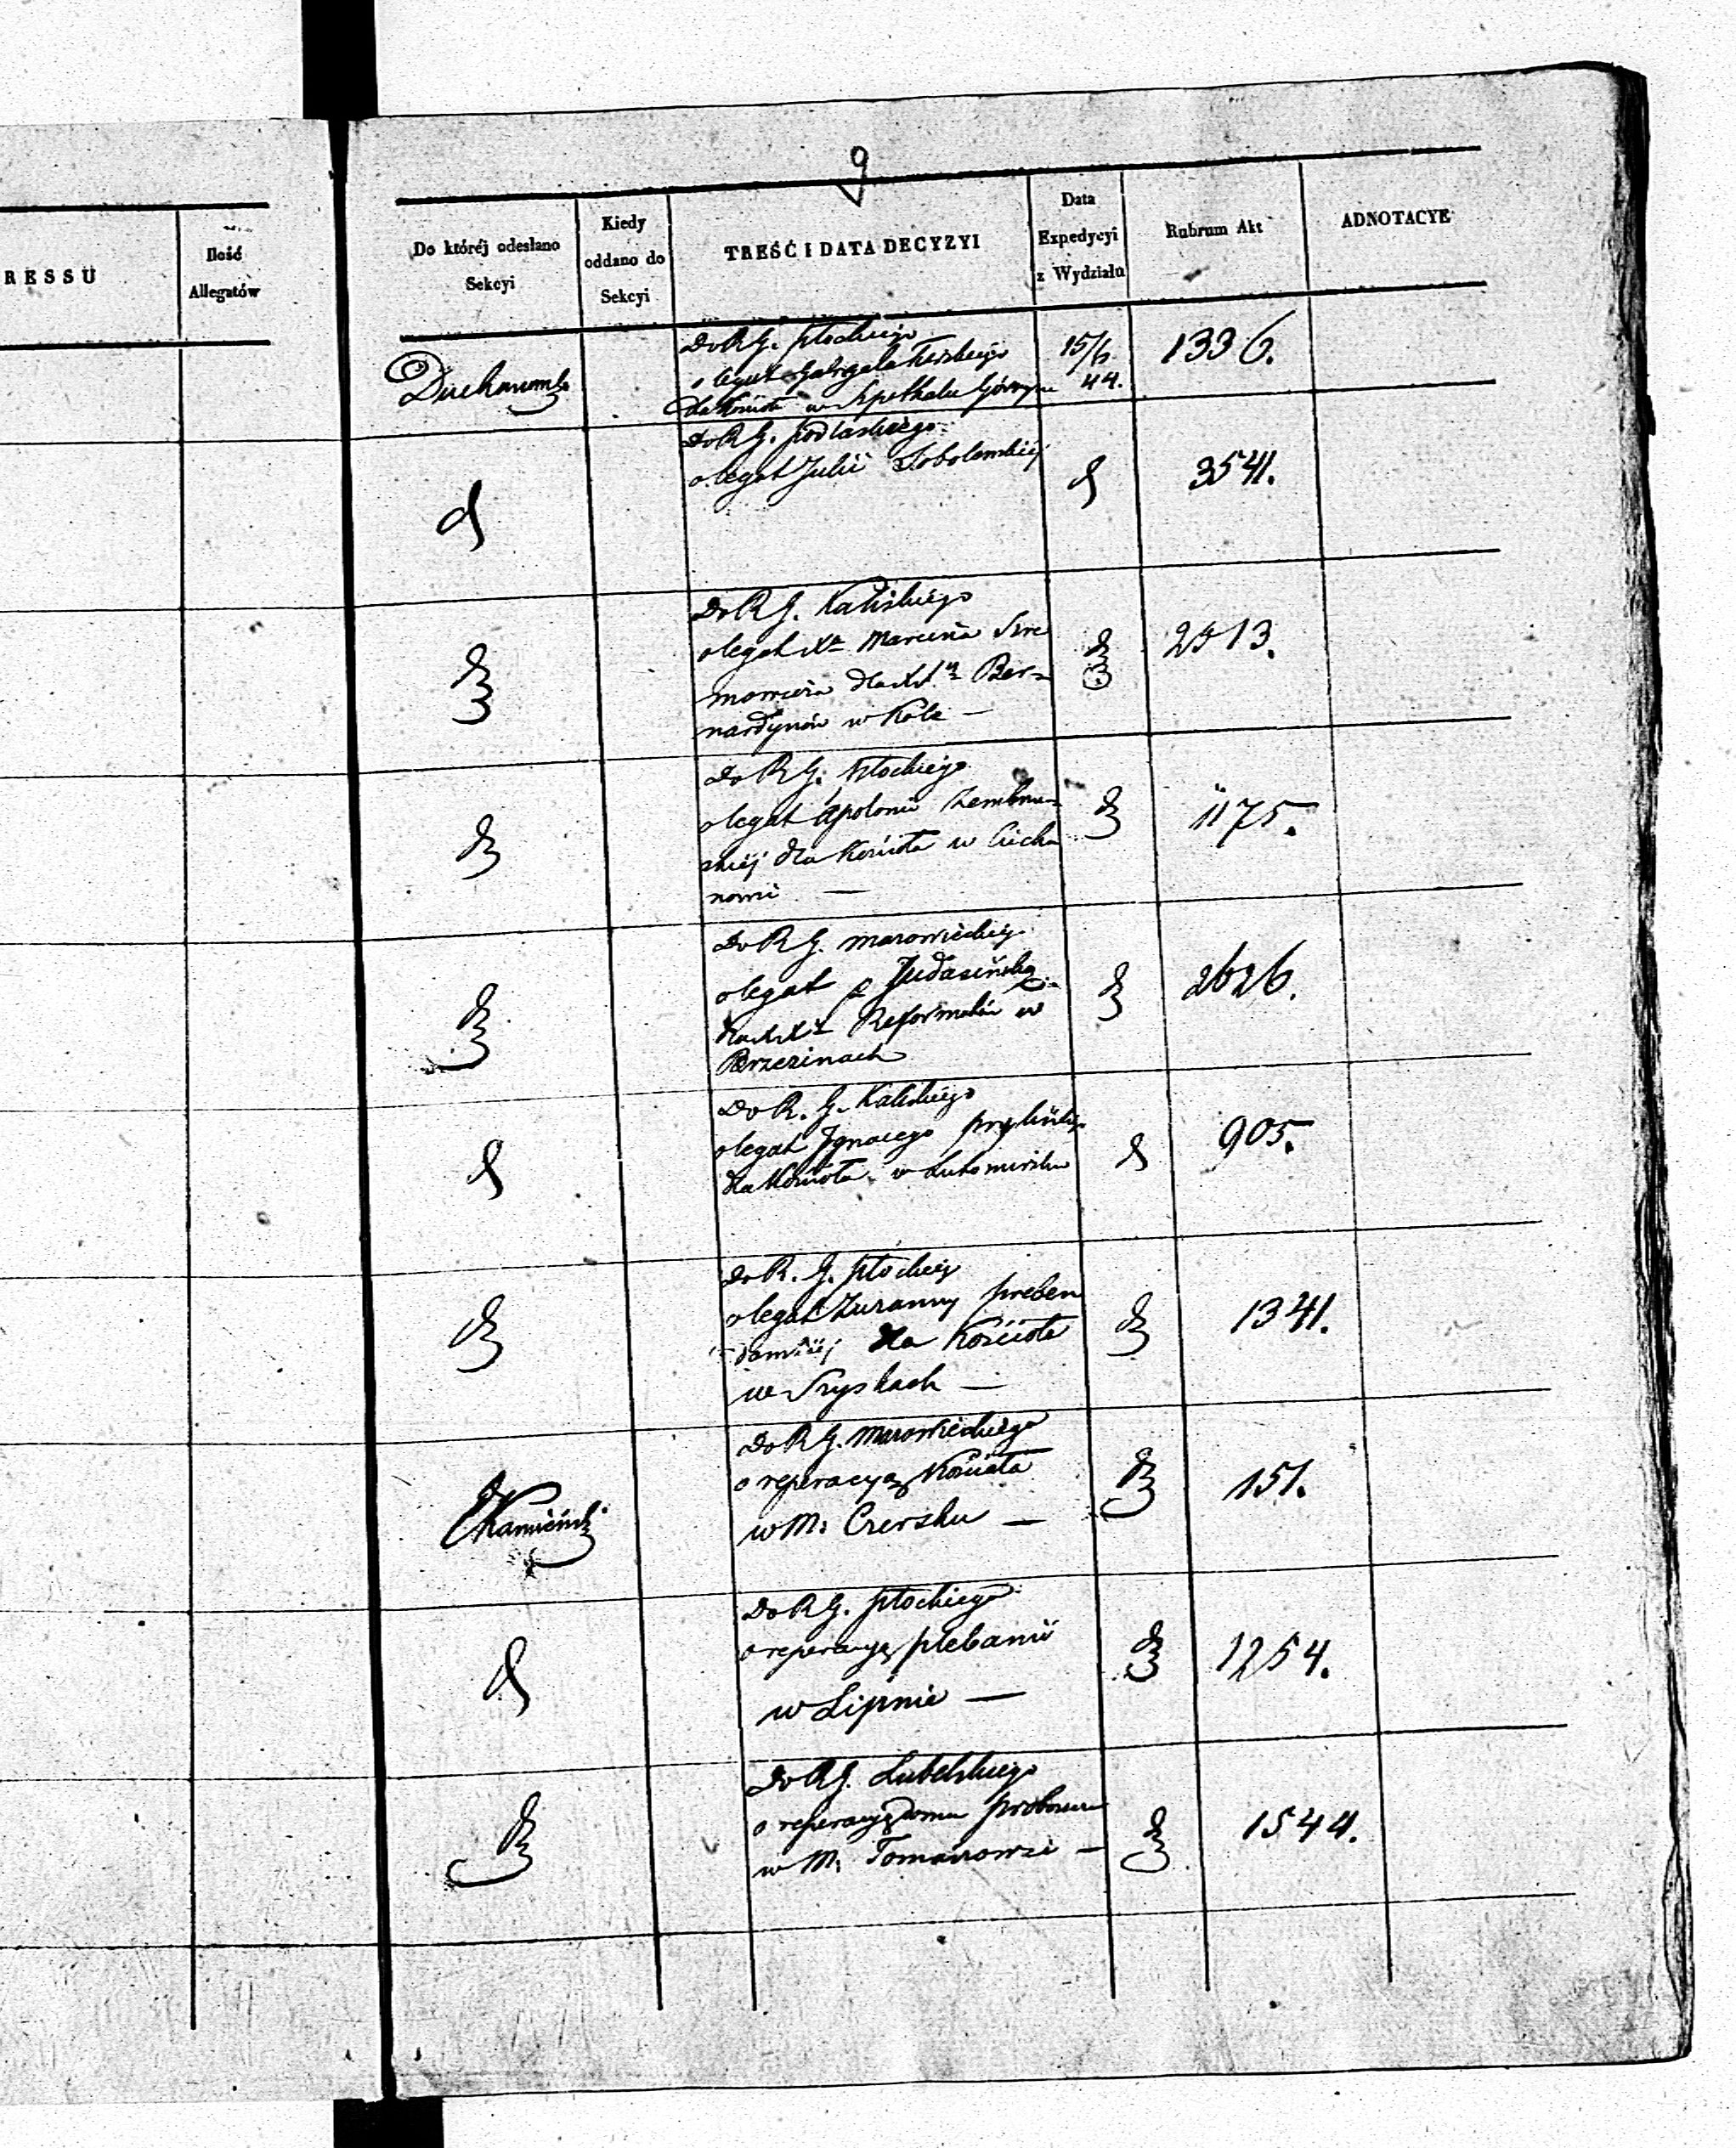 9
RESSU
Ilość
Allegatów
Do któréj odesłano
Sekcyi
Kiedy
oddano do
Sekcyi
TREŚĆ I DATA DECYZYI
Data
Expedycyi
z Wydziału
Rubrum Akt
ADNOTACYE
Do R G. Płockiego
o legat Gabryela
dla Kościoła w Szpetkalu Górnym
15/6
44.
1336.
Do R G. Podlaskiego
o legat Julii Sobolewskiéj
d
d
3541.
Do R G. Kaliskiego
o legat Xa Marcina Szre
mowicza dla XX Ber-
nardynów w Kole —
2513.
Do R G. Płockiego
o legat Apolonii Zembrzu-
skiéj dla Kościoła w Ciecha
nowie —
1175.
Do R G. Mazowieckiego
o legat
dla XX Reformatów w
Brzezinach
2626.
Do R. G. Kaliskiego
o legat Ignacego
dla Kościoła w Lutomirsku
d
d
905.
Do R. G. Płockiego
o legat Zuzanny Preben
dowskiéj dla Kościoła
w Szyskach —
1341.
Do R G. Mazowieckiego
o reperacyą Kościoła
w M. Czersku —
Kamiński
151.
Do R G. Płockiego
o reperacyę plebanii
w Lipnie —
d
1254.
Do R G. Lubelskiego
o reperacyę domu
w M. Tomaszowie —
1544.